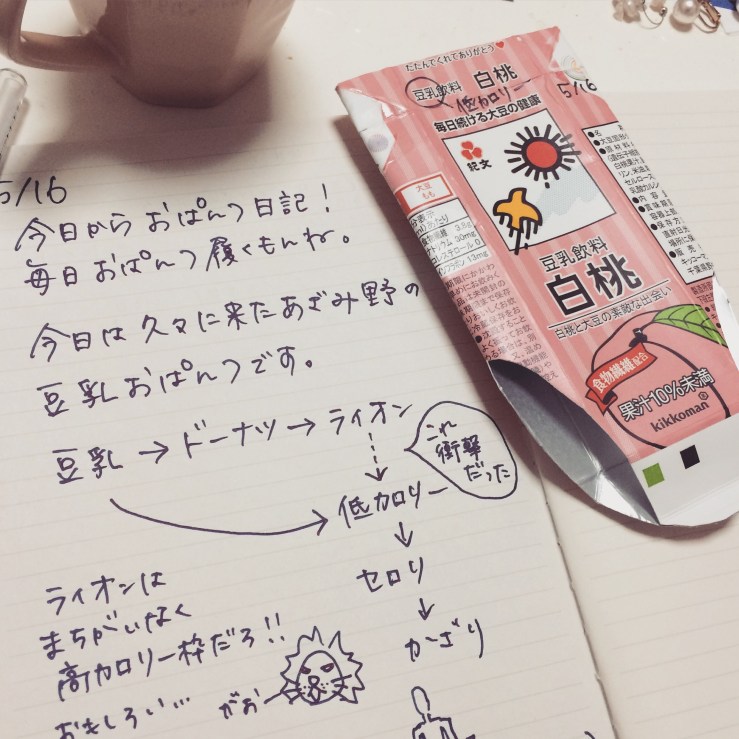 5/16
今日から おぱんつ 日記！
毎日 おぱんつ 履くもんね。
今日は 久々に来た あざみ野の
豆乳 おぱんつです。
豆乳 → ドーナツ → ライオン
これ
衝撃
だった
低カロリー
セロリ
かざり
ライオンは
まちがいなく
高カロリー枠だろ!!
おもしろい…
がおー
たたんでくれてありがとう
豆乳飲料 白桃
低カロリー
毎日続ける大豆の健康
5/16
紀文
大豆
もも
豆乳飲料
白桃
白桃と大豆の素敵な出会い
食物繊維配合
果汁10%未満
kikkoman®